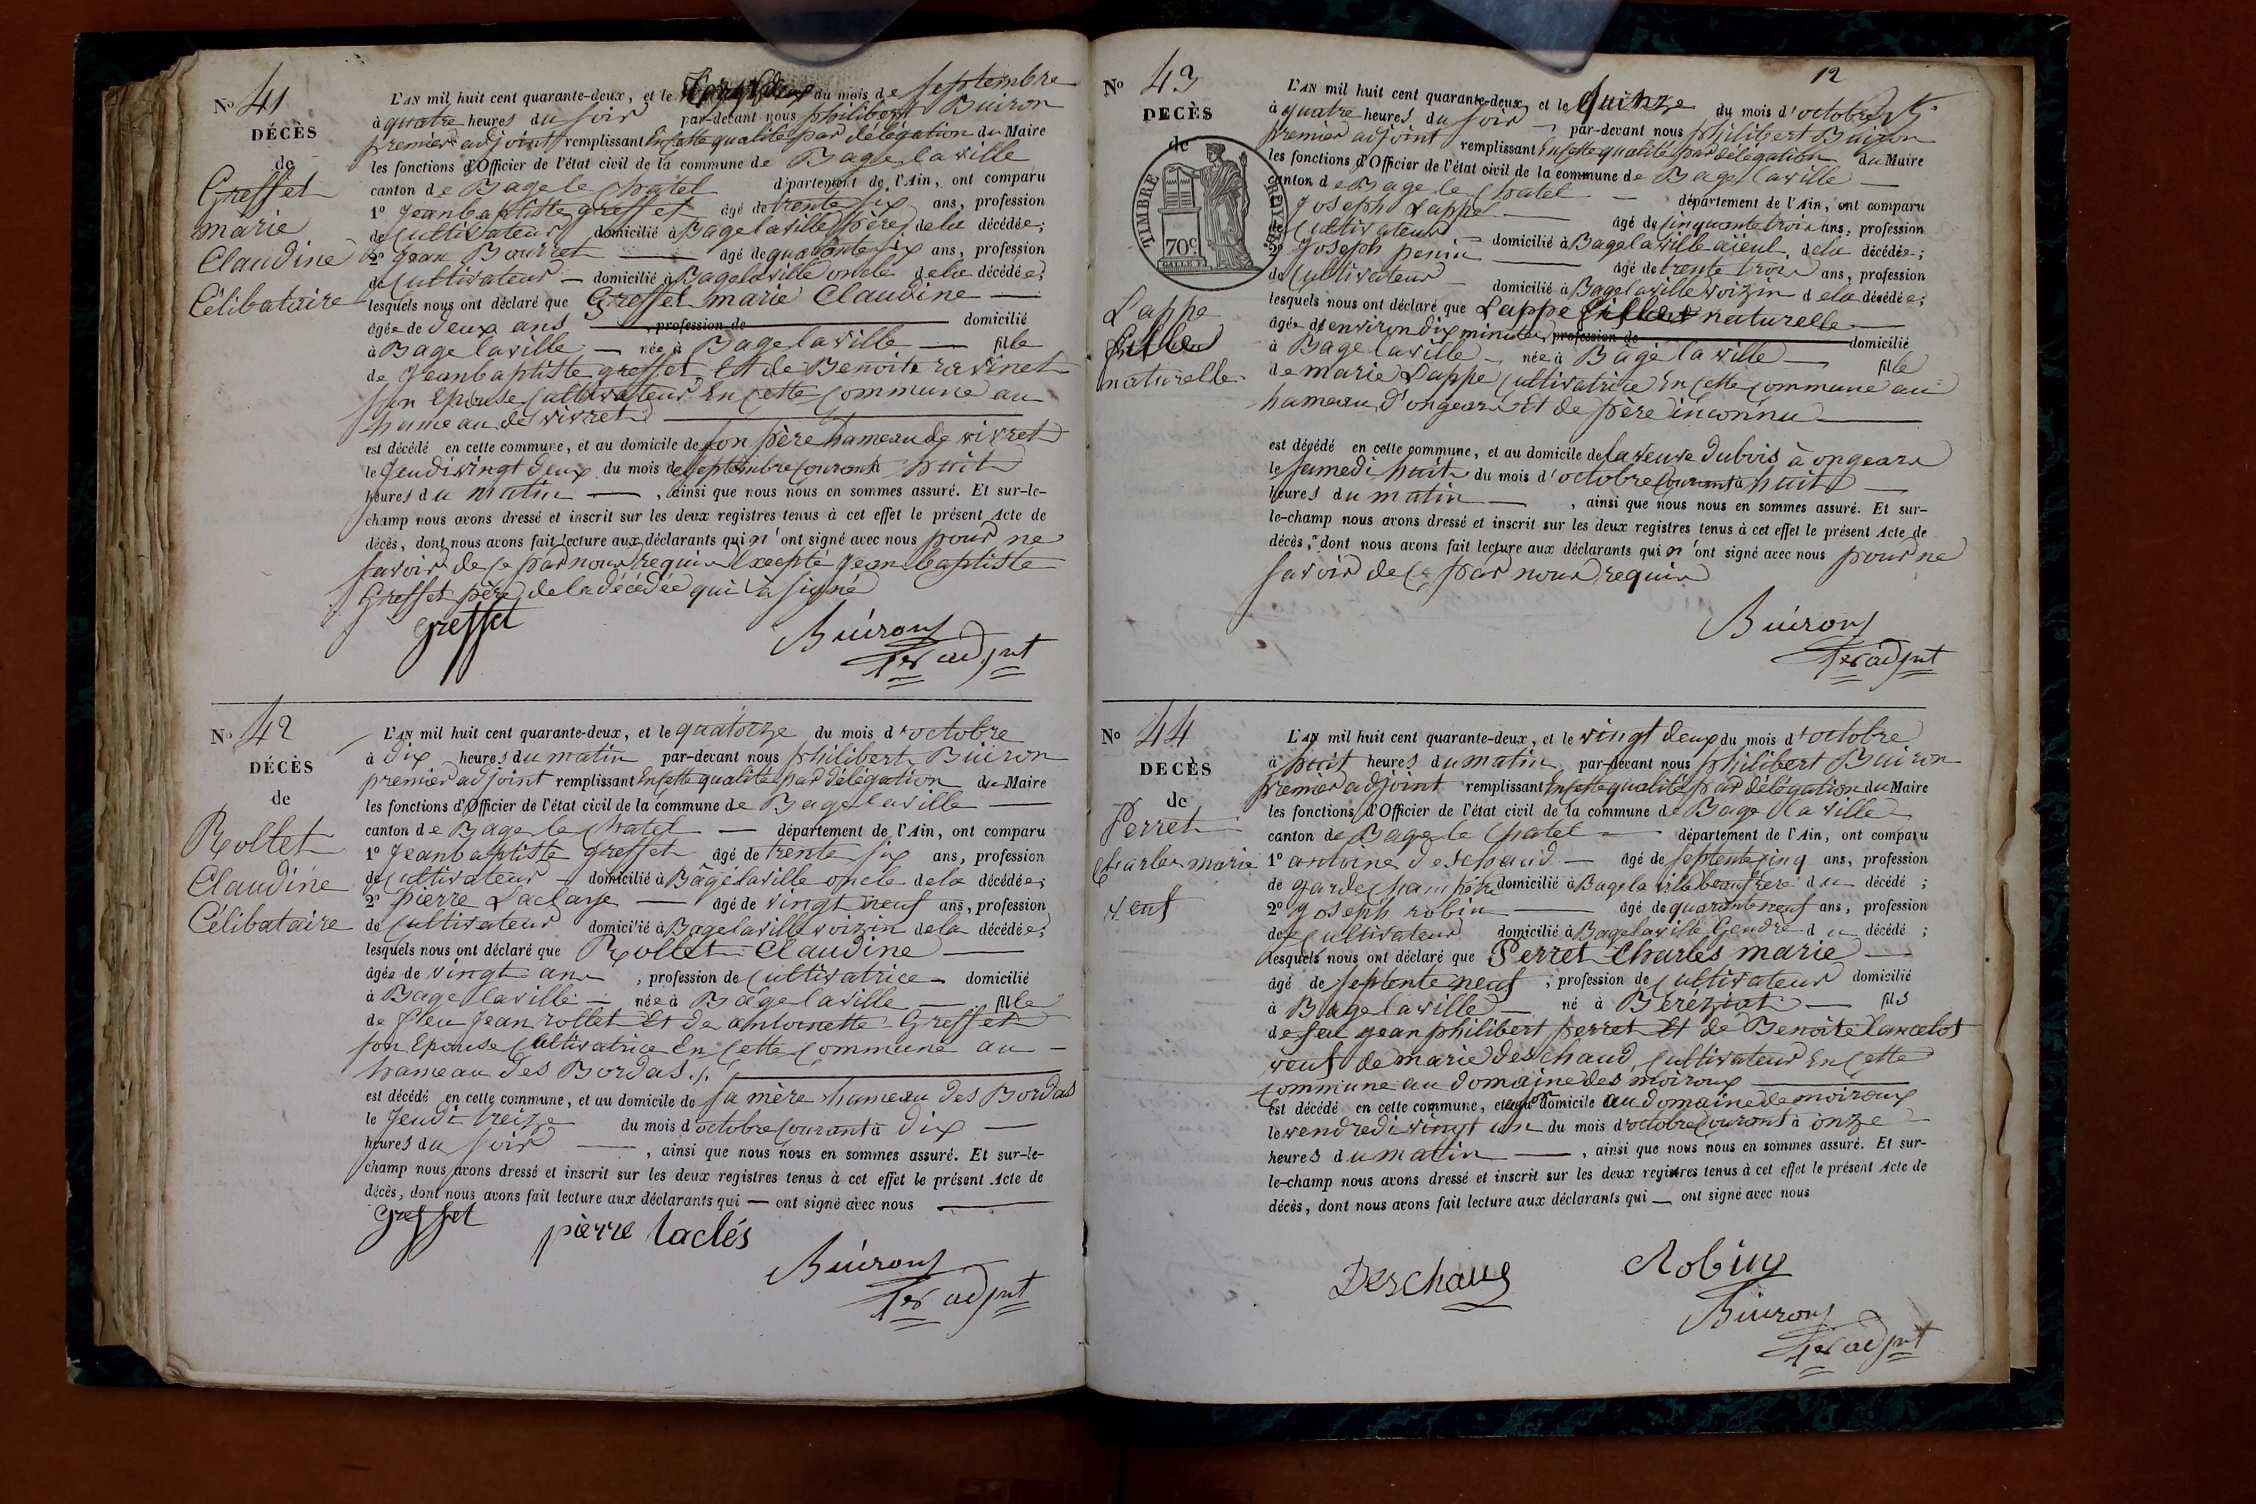 N° 41
DÉCÈS
de
Greffet
marie
Claudine
Célibataire
L'AN mil huit cent quarante-deux, et le du mois de Septembre
à quatre heures du soir par-devant nous philibert Buiron
premier adjoint remplissant En cette qualité par délégation du Maire
les fonctions d'Officier de l'état civil de la commune de Bage la ville
canton de Bage le Chatel département de l'Ain, ont comparu
1° Jean baptiste greffet âgé de trente six ans, profession
de Cultivateur domicilié à Bage la ville père de la décédée;
2° Jean Bouvret âgé de quarante six ans, profession
de Cultivateur domicilié à Bage la ville oncle de la décédée;
lesquels nous ont déclaré que Greffet marie Claudine
âgée de deux ans profession de domicilié
à Bage la ville née à Bage la ville fille
de Jean baptiste greffet Et de Benoite ravinet
son Epouse Cultivateur En cette Commune au
hameau de vivret
est décédé en cette commune, et au domicile de son père hameau de vivret
le Jeudi vingt deux du mois de septembre Courant à huit
heures du matin , ainsi que nous nous en sommes assuré. Et sur-le-
champ nous avons dressé et inscrit sur les deux registres tenus à cet effet le présent Acte de
décès, dont nous avons fait lecture aux déclarants qui n'ont signé avec nous pour ne
savoir de ce par nous requis Excepté Jean baptiste
Greffet père de la décédée qui à signé
greffet
Buiron
1er adjnt
N° 42
DÉCÈS
de
Rollet
Claudine
Célibataire
L'AN mil huit cent quarante-deux, et le quatorze du mois d'octobre
à dix heures du matin par-devant nous philibert Buiron
premier adjoint remplissant En cette qualité par délégation du Maire
les fonctions d'Officier de l'état civil de la commune de Bage la ville
canton de Bage le Chatel département de l'Ain, ont comparu
1° Jean baptiste greffet âgé de trente six ans, profession
de Cultivateur domicilié à Bagé la ville oncle de la décédée;
2° pierre Laclaye âgé de vingt neuf ans, profession
de Cultivateur domicilié à Bage la ville voizin de la décédée;
lesquels nous ont déclaré que Rollet Claudine
âgée de vingt ans , profession de Cultivatrice domicilié
à Bage la ville née à Bâge la ville fille
de feu Jean rollet Et de antoinette Greffet
son Epouse Cultivatrice En Cette Commune au
hameau des Bordas ./.
est décédé en cette commune, et au domicile de sa mère hameau des Bordas
le Jeudi treize du mois d'octobre Courant à dix
heures du soir , ainsi que nous nous en sommes assuré. Et sur-le-
champ nous avons dressé et inscrit sur les deux registres tenus à cet effet le présent Acte de
décès, dont nous avons fait lecture aux déclarants qui ont signé avec nous
greffet pierre laclés
Buiron
1er adjnt
12
N° 43
DÉCÈS
de
TIMBRE
70c
Lappe
fille
naturelle
L'AN mil huit cent quarante-deux, et le Quinze du mois d'octobre
à quatre heures du soir par-devant nous philibert Buiron
premier adjoint remplissant En cette qualité par délégation du Maire
les fonctions d'Officier de l'état civil de la commune de Bage la ville
canton de Bage le Chatel département de l'Ain, ont comparu
Joseph Lappe âgé de Cinquante trois ans, profession
Cultivateur domicilié à Bage la ville aïeul de la décédée;
2° Joseph penin âgé de trente trois ans, profession
de Cultivateur domicilié à Bage la ville voizin de la décédée;
lesquels nous ont déclaré que Lappe naturelle
âgée d'environ dix minutes profession de domicilié
à Bage la ville née à Bage la ville fille
de marie Lappe Cultivatrice En cette Commune au
hameau d'ongears Et de père inconnu
est décédé en cette commune, et au domicile de la veuve dubois à ongears
le samedi huit du mois d'octobre Courant à huit
heures du matin , ainsi que nous nous en sommes assuré. Et sur-
le-champ nous avons dressé et inscrit sur les deux registres tenus à cet effet le présent Acte de
décès, dont nous avons fait lecture aux déclarants qui n'ont signé avec nous pour ne
savoir de ce par nous requis
Buiron
1er adjnt
N° 44
DECÈS
de
Perret
Charles marie
veuf
L'AN mil huit cent quarante-deux, et le vingt deux du mois d'octobre
à huit heures du matin par-devant nous philibert Buiron
premier adjoint remplissant En cette qualité par délégation du Maire
les fonctions d'Officier de l'état civil de la commune de Bage la ville
canton de Bage le Chatel département de l'Ain, ont comparu
1° antoine deschaud âgé de septente cinq ans, profession
de garde champêtre domicilié à Bage la ville beaufrere du décédé ;
2° Joseph robin âgé de quarante neuf ans, profession
de Cultivateur domicilié à Bage la ville Gendre du décédé ;
lesquels nous ont déclaré que Perret Charles marie
âgé de septente neuf , profession de Cultivateur domicilié
à Bage la ville né à Béréziat fils
de feu Jean philibert perret Et de Benoite Lancelot
veuf de marie deschaud Cultivateur En cette
Commune au domaine des moiroux
Est décédé en cette commune, et à son domicile au domaine de moiroux
le vendredi vingt un du mois d'octobre Courant à onze
heures du matin , ainsi que nous nous en sommes assuré. Et sur-
le-champ nous avons dressé et inscrit sur les deux registres tenus à cet effet le présent Acte de
décès, dont nous avons fait lecture aux déclarants qui ont signé avec nous
Deschaud Robin
Buiron
1er adjnt